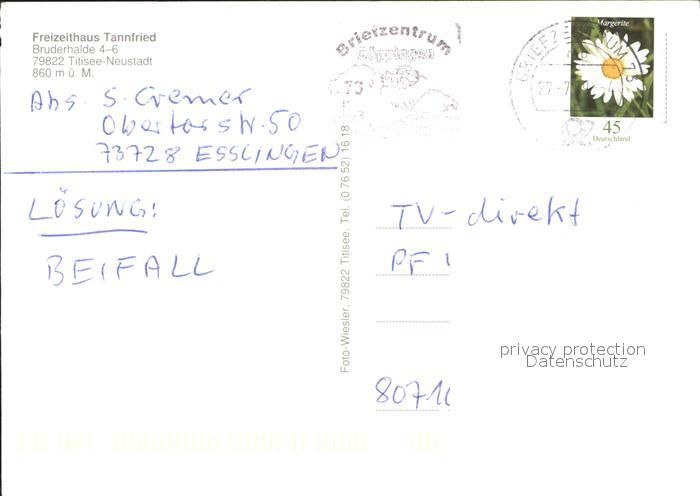 Freizeithaus Tannfried
Bruderhalde 4–6
79822 Titisee-Neustadt
860 m ü. M.
Abs. S. Cremer
Obertorstr. 50
73728 ESSLINGEN
LÖSUNG:
BEIFALL
Foto-Wiesler, 79822 Titisee, Tel. (0 76 52) 16 18
Briefzentrum
Göppingen
73
BRIEFZENTRUM 73
27.7
Margerite
45
Deutschland
TV-direkt
PF
privacy protection
Datenschutz
80710